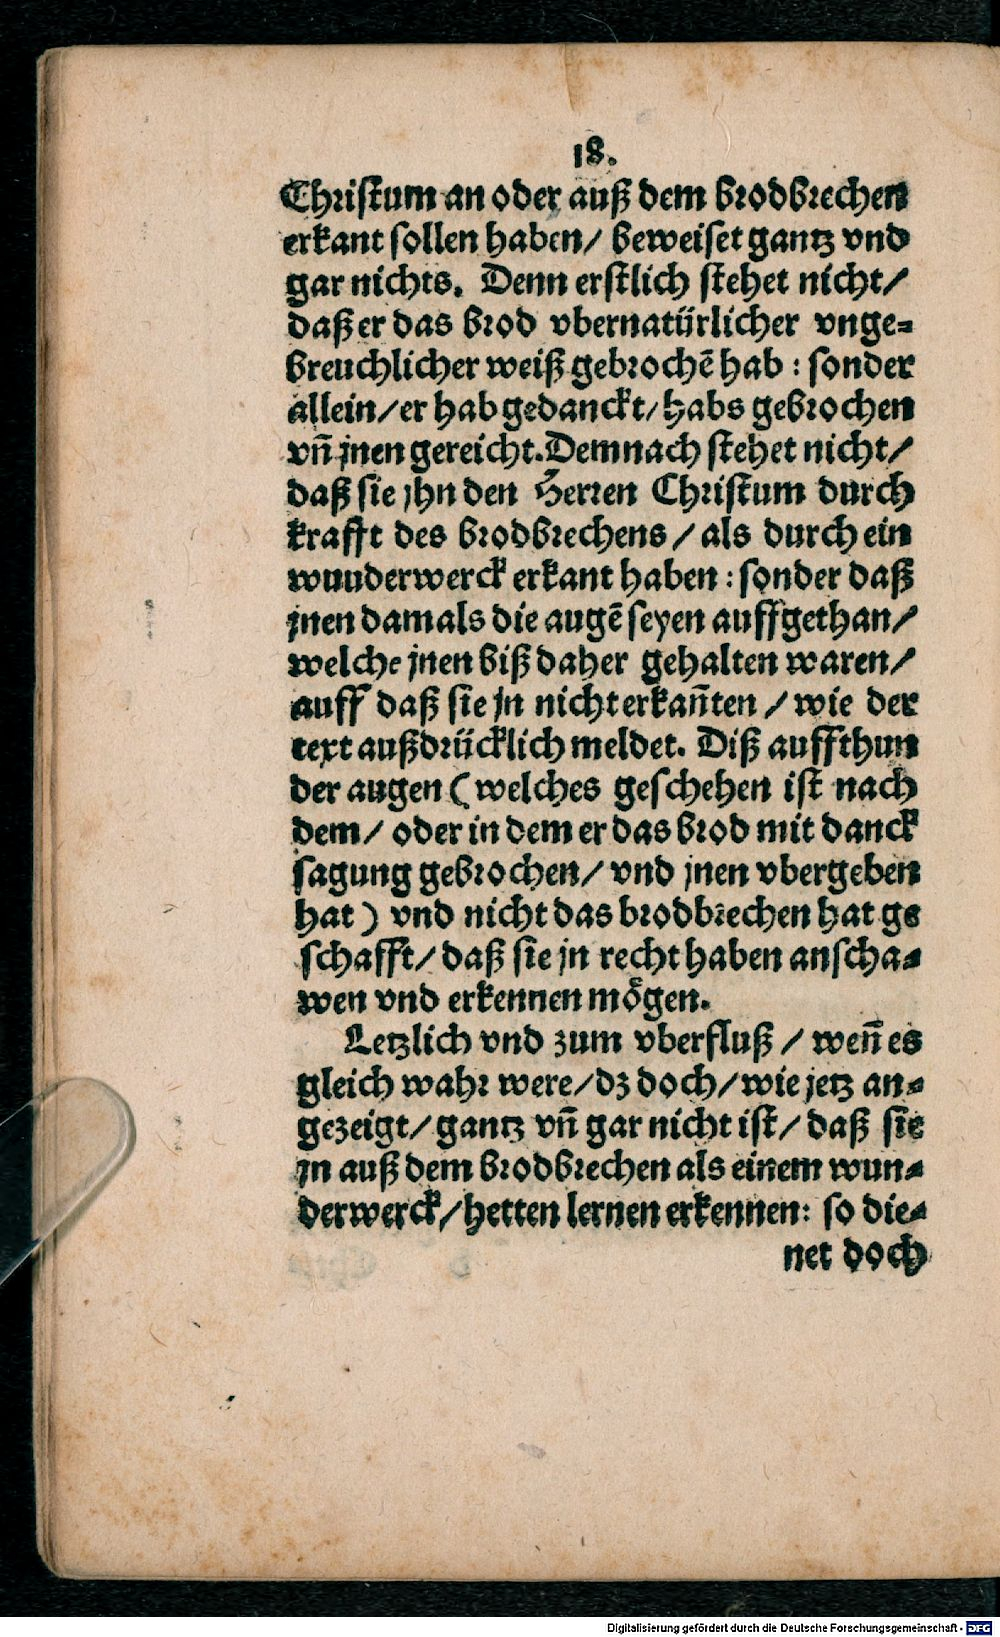 18.
Christum an oder auß dem brodbrechen
erkant sollen haben/ beweiset gantz vnd
gar nichts. Denn erstlich stehet nicht/
daß er das brod vbernatürlicher vnge-
breuchlicher weiß gebrochē hab : sonder
allein/er hab gedanckt/habs gebrochen
vñ jnen gereicht. Demnach stehet nicht/
daß sie jhn den Herren Christum durch
krafft des brodbrechens / als durch ein
wuuderwerck erkant haben : sonder daß
jnen damals die augē seyen auffgethan/
welche jnen biß daher gehalten waren/
auff daß sie jn nicht erkañten / wie der
text außdrücklich meldet. Diß auffthun
der augen (welches geschehen ist nach
dem/ oder in dem er das brod mit danck
sagung gebrochen/ vnd jnen vbergeben
hat) vnd nicht das brodbrechen hat ge
schafft/ daß sie jn recht haben anscha-
wen vnd erkennen mögen.
Letzlich vnd zum vberfluß / weñ es
gleich wahr were/dz doch/wie jetz an-
gezeigt/gantz vñ gar nicht ist/ daß sie
jn auß dem brodbrechen als einem wun-
derwerck/hetten lernen erkennen: so die-
net doch
Digitalisierung gefördert durch die Deutsche Forschungsgemeinschaft - DFG